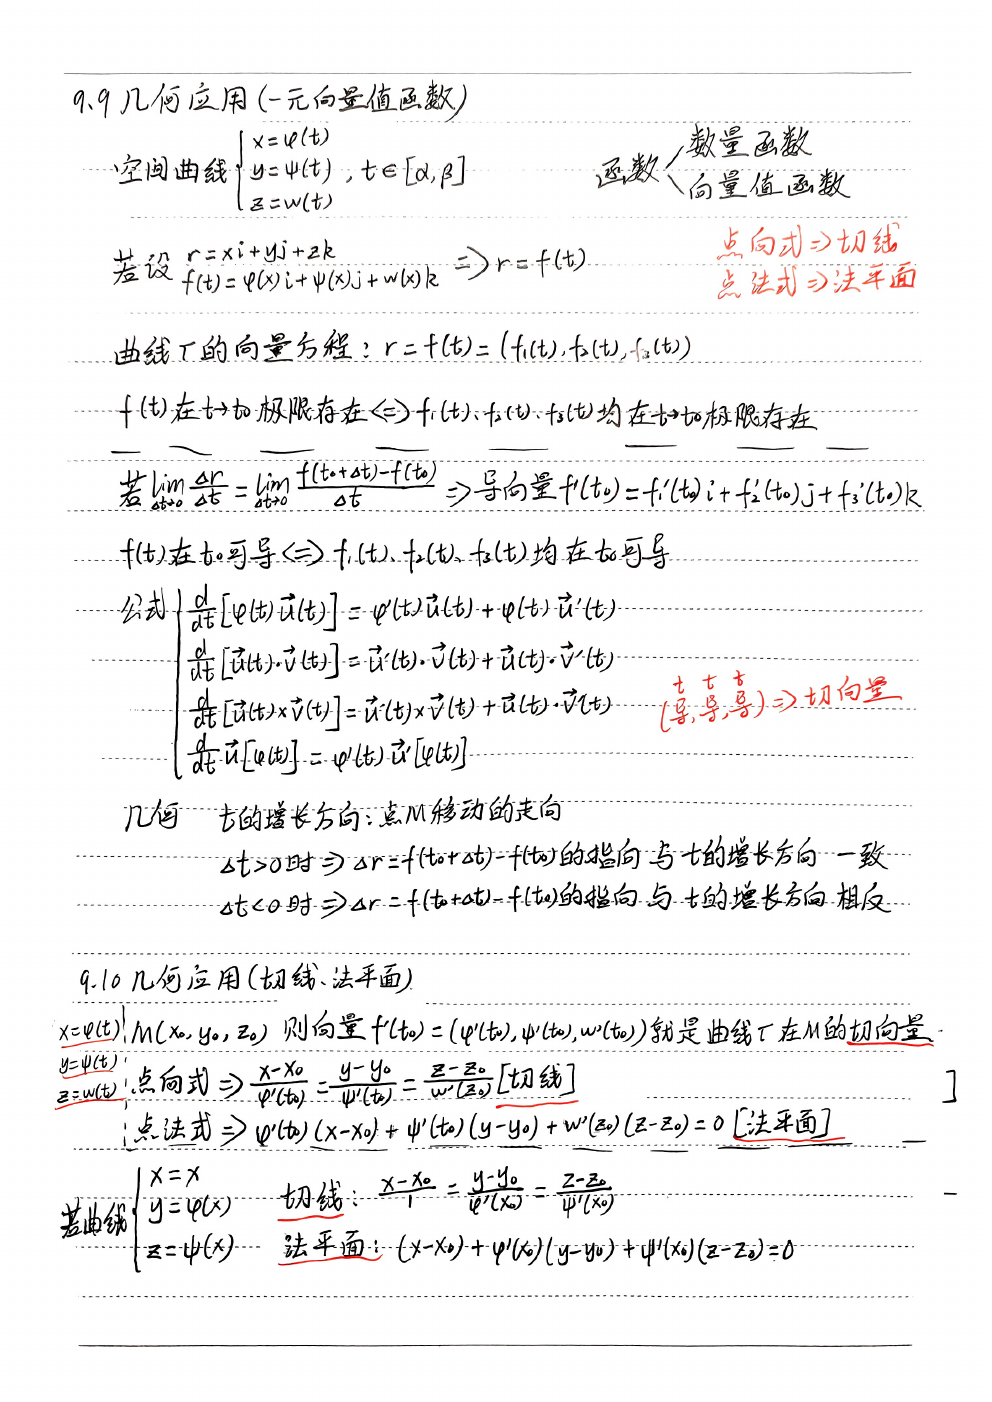 9.9 几何应用(一元向量值函数)
空间曲线 { x=φ(t) y=ψ(t), t∈[α,β] z=w(t)
函数 数量函数 向量值函数
若设 r=xi+yj+zk f(t)=φ(x)i+ψ(x)j+w(x)k ⇒ r=f(t)
点向式⇒切线
点法式⇒法平面
曲线Γ的向量方程: r=f(t)=(f₁(t),f₂(t),f₃(t))
f(t)在t→t₀极限存在⇔f₁(t)、f₂(t)、f₃(t)均在t→t₀极限存在
若 lim Δt→0 Δr/Δt = lim Δt→0 (f(t₀+Δt)-f(t₀))/Δt ⇒ 导向量f'(t₀)=f₁'(t₀)i+f₂'(t₀)j+f₃'(t₀)k
f(t)在t₀可导⇔f₁(t)、f₂(t)、f₃(t)均在t₀可导
公式 { d/dt[φ(t)u⃗(t)]=φ'(t)u⃗(t)+φ(t)u⃗'(t)
d/dt[u⃗(t)·v⃗(t)]=u⃗'(t)·v⃗(t)+u⃗(t)·v⃗'(t)
d/dt[u⃗(t)×v⃗(t)]=u⃗'(t)×v⃗(t)+u⃗(t)·v⃗'(t)
d/dt u⃗[φ(t)]=φ'(t)u⃗'[φ(t)]
t t t
(导,导,导)⇒切向量
几何 t的增长方向:点M移动的走向
Δt>0时⇒Δr=f(t₀+Δt)-f(t₀)的指向与t的增长方向一致
Δt<0时⇒Δr=f(t₀+Δt)-f(t₀)的指向与t的增长方向相反
9.10 几何应用(切线、法平面)
x=φ(t)
y=ψ(t)
z=w(t)
M(x₀,y₀,z₀) 则向量f'(t₀)=(φ'(t₀),ψ'(t₀),w'(t₀))就是曲线Γ在M的切向量
点向式⇒ (x-x₀)/φ'(t₀) = (y-y₀)/ψ'(t₀) = (z-z₀)/w'(z₀) [切线]
点法式⇒φ'(t₀)(x-x₀)+ψ'(t₀)(y-y₀)+w'(z₀)(z-z₀)=0 [法平面]
若曲线 { x=x y=φ(x) z=ψ(x)
切线: (x-x₀)/1 = (y-y₀)/φ'(x₀) = (z-z₀)/ψ'(x₀)
法平面: (x-x₀)+φ'(x₀)(y-y₀)+ψ'(x₀)(z-z₀)=0